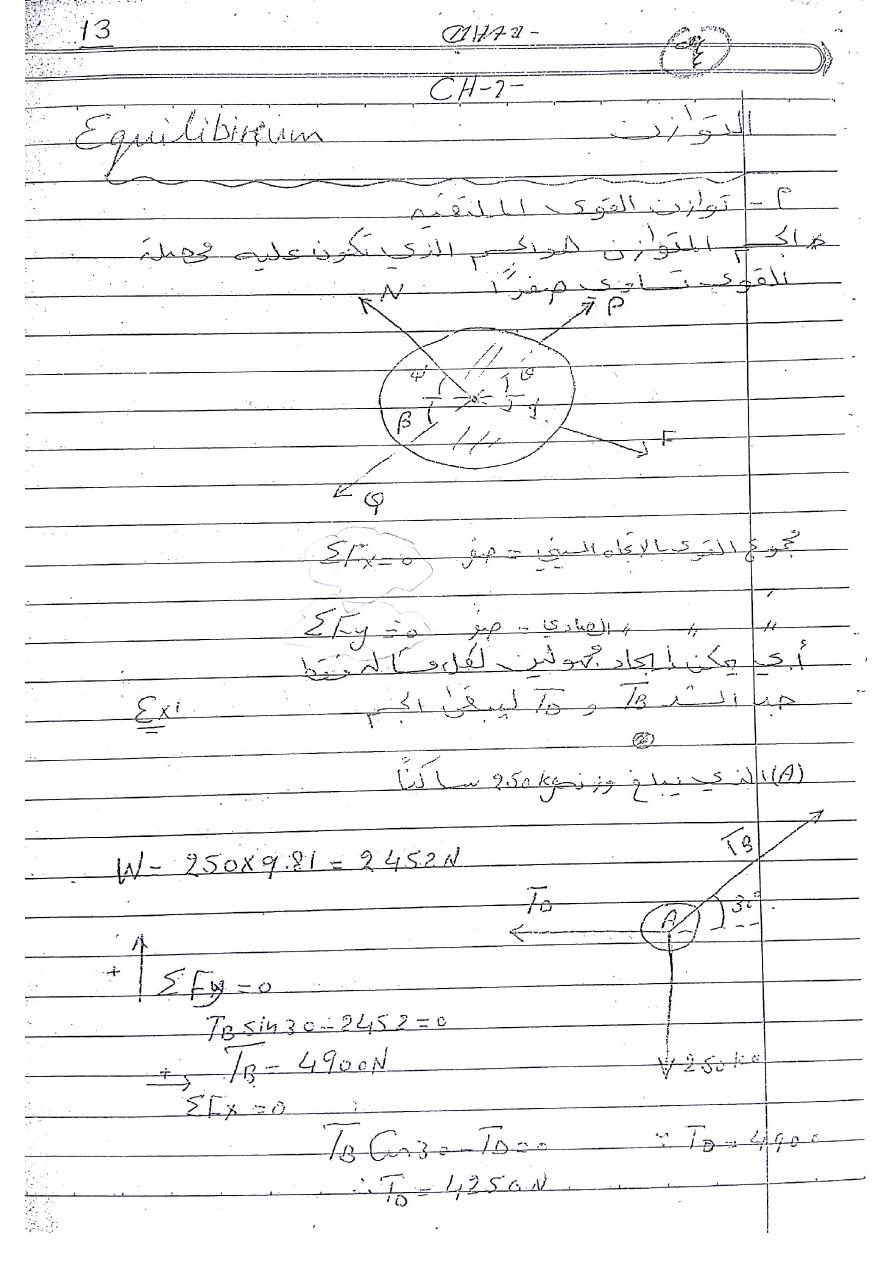 13
CH-2-
Equilibirium التوازن
P - توازن القوى الملتقيه
الجسم المتوازن هو الجسم الذي تكون عليه محصلة
القوى تساوي صفراً
N P
ψ θ
β
F
φ
مجموع القوى بالاتجاه السيني = صفر ΣFx=0
〃 〃 〃 الصادي = صفر ΣFy=0
أي يمكن ايجاد مجهولين لكل مسالة فقط
Ex1 جد الشد TB و TD ليبقى الجسم
(A) الذي يبلغ وزنه 250kg ساكناً
TB
W = 250×9.81 = 2452N
TD A 30°
+ ΣFy=0
TB sin30 - 2452=0
TB = 4900N 250kg
+ ΣFx=0
TB Cos30 - TD=0 ∵ TB = 4900
∴ TD = 4250N